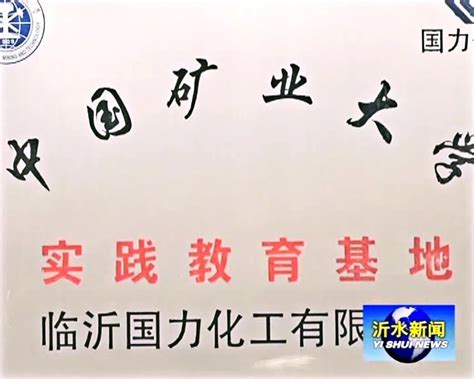 国力
中国矿业大学
实践教育基地
临沂国力化工有限
沂水新闻
YI SHUI NEWS